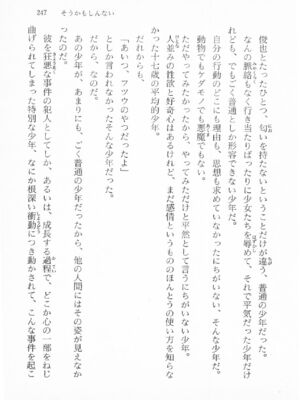 247 そうかもしんない
俊也とたったひとつ、匂いを持たないということだけが違う、普通の少年だった。
なんの脈絡もなく行き当たりばったりに少女たちを辱めて、それで平気だった少年だけ
れども、でもごく普通としか形容できない少年だ。
自分の行動のどこにも理由も、思想も求めていなかったにちがいない、そんな少年だ。
動物でもケダモノでも悪魔でもない。
ただやってみたかっただけだと平然として言うにちがいない少年だ。
人並みの性欲と好奇心はあるけれど、まだ感情というもののほんとうの使い方を知らな
かった十七歳の平均的少年。
だれからも、
「あいつ、フツウのやつだったよ」
としか言われなかったそんな少年だった。
あの少年が、あまりにも、ごく普通の少年だったから、他の人間にはその姿が見えなか
ったのだ。
彼を狂悪な事件の犯人としてしか、あるいは、成長する過程で、どこか心の一部をねじ
曲げられてしまった特別な少年、なにか根深い衝動につき動かされて、こんな事件を起こ